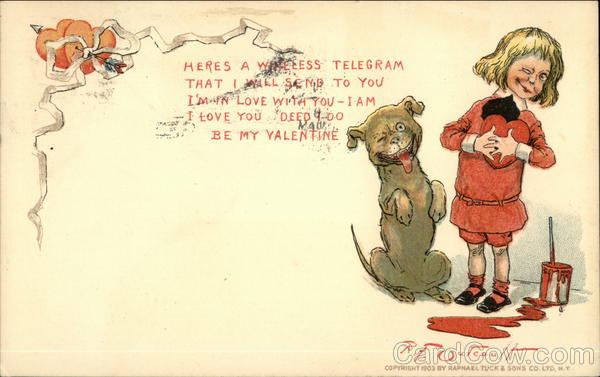 HERES A WIRELESS TELEGRAM
THAT I WILL SEND TO YOU
I'M IN LOVE WITH YOU - I AM
I LOVE YOU DEED I DO
BE MY VALENTINE
R.F. Outcault
COPYRIGHT 1903 BY RAPHAEL TUCK & SONS CO. LTD, N.Y.
CardCow.com